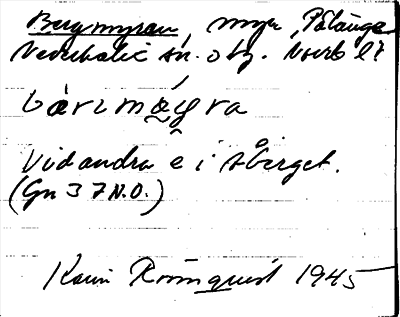 Bergmyran, myr, Pålänge
Nederkalix sn. o tg. Norrb. l:
bærɪmy̆ra
Vid andra e i åberget.
(Gn 37 N.O.)
Karin Rönnquist 1945